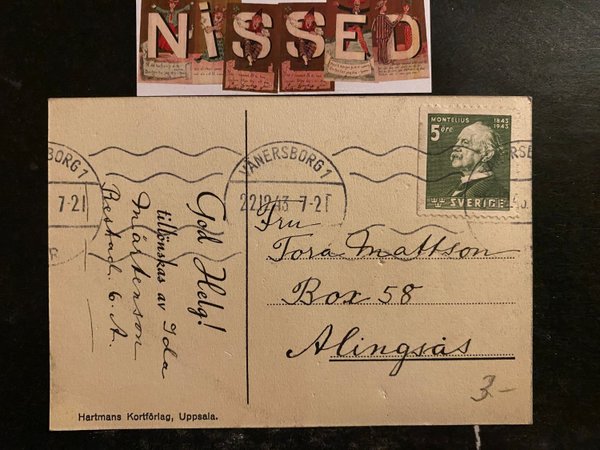 NISSED
MONTELIUS 1843
1943
5 öre
SVERIGE
VÄNERSBORG 1
7-21
VÄNERSBORG 1
22.12.43 7-21
God Helg!
tillönskas av Ida
Mårtenson
Restad. b. A.
Fru
Tora Mattson
Box 58
Alingsås
3-
Hartmans Kortförlag, Uppsala.